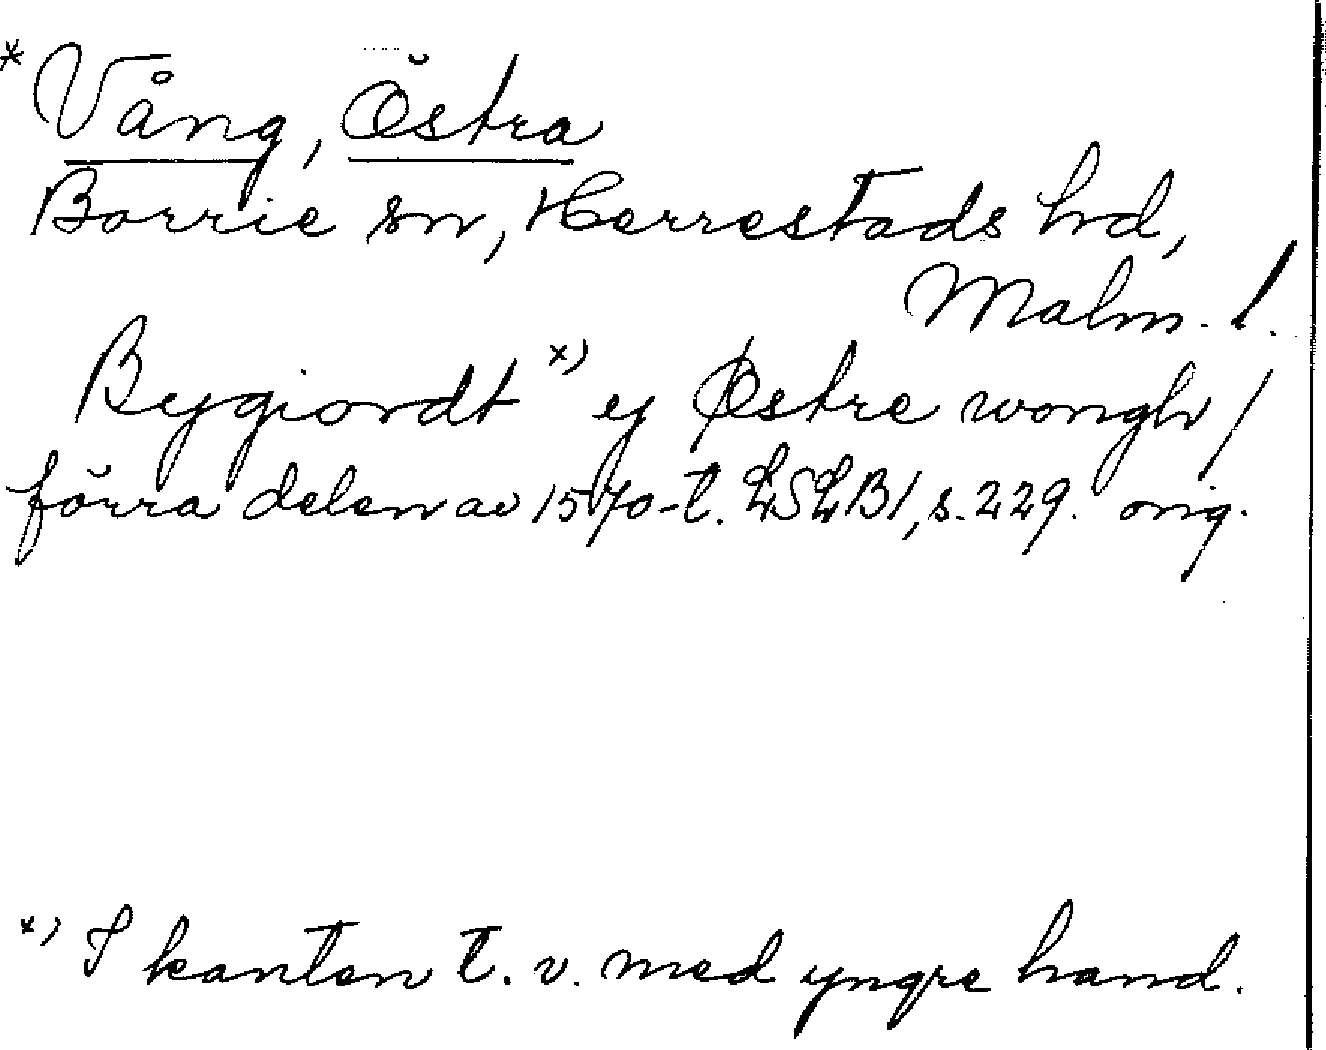 * Vång, Östra
Borrie sn, Herrestads hd,
Malm. l.
Bygiordt x) ej Østre wongh /
förra delen av 1570-t. LSLB1, s. 229. orig.
x) I kanten t. v. med yngre hand.